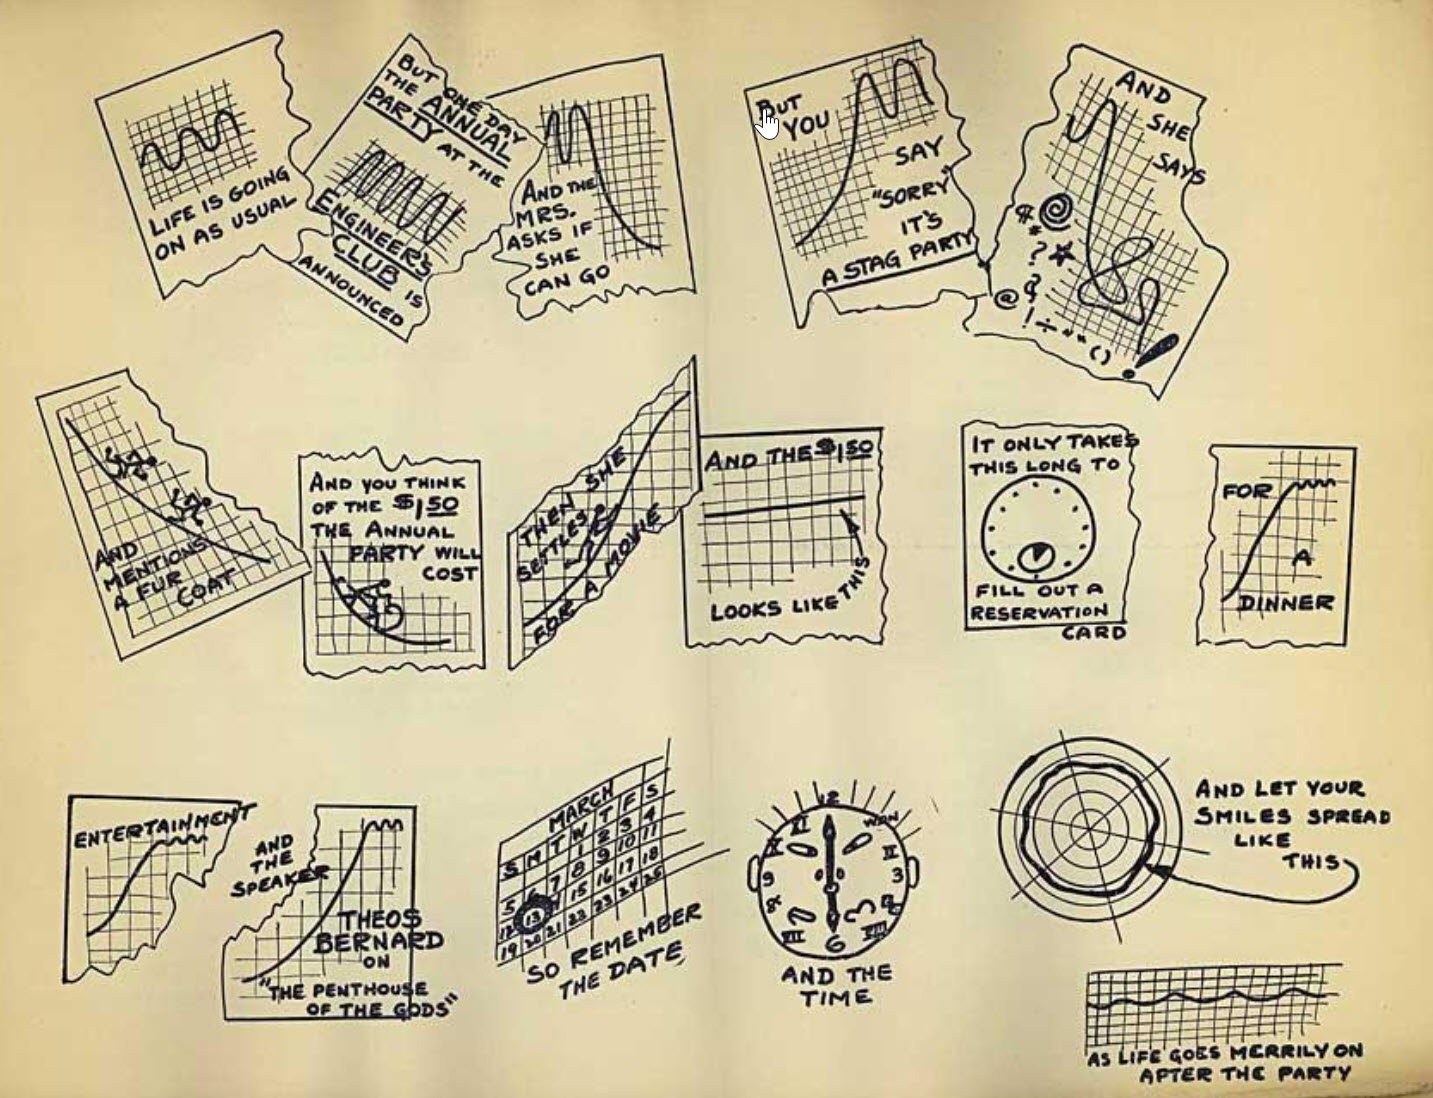 LIFE IS GOING
ON AS USUAL
BUT ONE DAY
THE ANNUAL
PARTY AT THE
ENGINEER'S
CLUB IS
ANNOUNCED
AND THE
MRS.
ASKS IF
SHE
CAN GO
BUT
YOU
SAY
"SORRY"
IT'S
A STAG PARTY
AND
SHE
SAYS
AND
MENTIONS
A FUR
COAT
AND YOU THINK
OF THE $1,50
THE ANNUAL
PARTY WILL
COST
THEN SHE
SETTLES
FOR A MOVIE
AND THE $1,50
LOOKS LIKE THIS
IT ONLY TAKES
THIS LONG TO
FILL OUT A
RESERVATION
CARD
FOR
A
DINNER
ENTERTAINMENT
AND
THE
SPEAKER
THEOS
BERNARD
ON
"THE PENTHOUSE
OF THE GODS"
MARCH
S M T W T F S
1 2 3 4
5 6 7 8 9 10 11
12 13 14 15 16 17 18
19 20 21 22 23 24 25
SO REMEMBER
THE DATE,
12
XI
9
3
6
AND THE
TIME
AND LET YOUR
SMILES SPREAD
LIKE
THIS
AS LIFE GOES MERRILY ON
AFTER THE PARTY